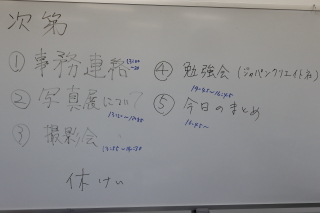 次第
① 事務連絡
② 写真展について
13:30~13:55
③ 撮影会
13:55~14:30
休けい
④ 勉強会（ジャパンクリエイト
14:45~16:45
⑤ 今日のまとめ
16:45~